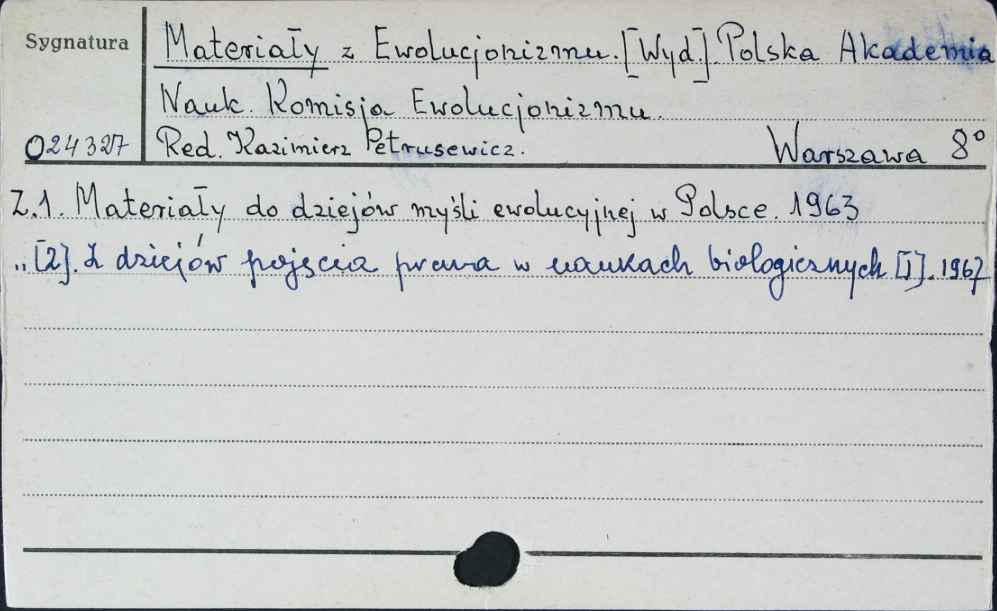 Sygnatura
Materiały z Ewolucjonizmu. [Wyd.] Polska Akademia
Nauk. Komisja Ewolucjonizmu.
024327 Red. Kazimierz Petrusewicz. Warszawa 8°
Z.1. Materiały do dziejów myśli ewolucyjnej w Polsce. 1963
„ [2]. Z dziejów pojęcia prawa w naukach biologicznych [1]. 1967